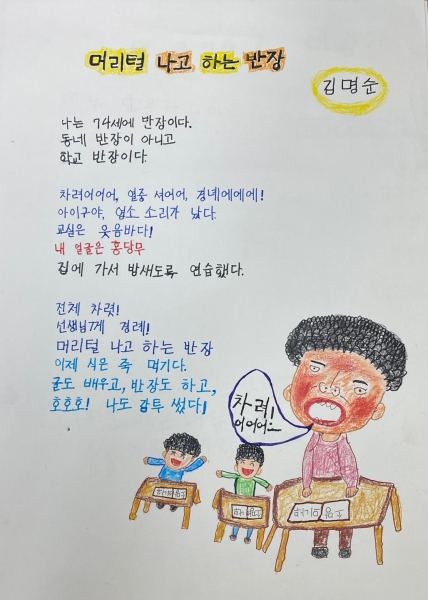 머리털 나고 하는 반장
김명순
나는 74세에 반장이다.
동네 반장이 아니고
학교 반장이다.
차려어어어, 열중 셔어어, 경녜에에에!
아이구야, 염소 소리가 났다.
교실은 웃음바다!
내 얼굴은 홍당무
집에 가서 밤새도록 연습했다.
전체 차렷!
선생님께 경례!
머리털 나고 하는 반장
이제 식은 죽 먹기다.
글도 배우고, 반장도 하고,
호호호! 나도 감투 썼다!
차려!
이어어ㅡ